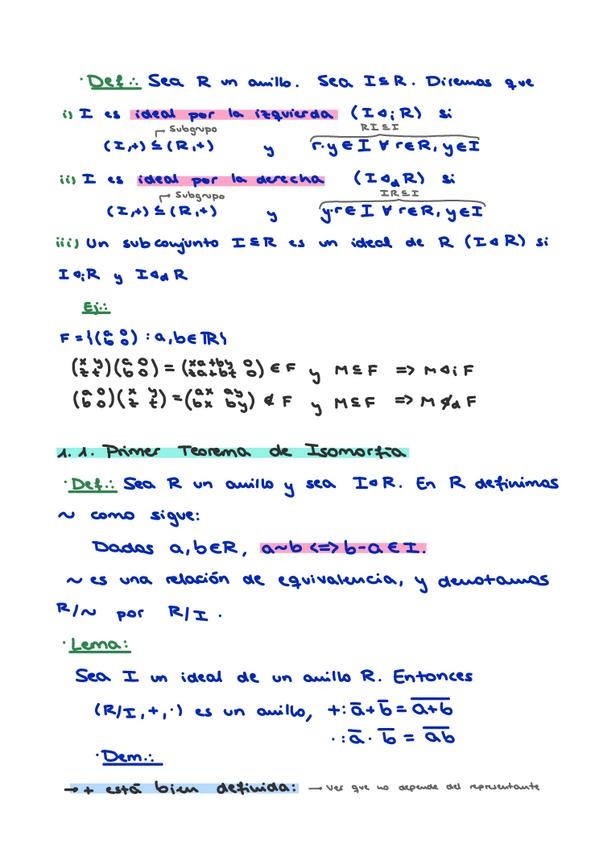 · Def.: Sea R un anillo. Sea I ⊆ R. Diremos que
i) I es ideal por la izquierda (I ⊲ᵢ R) si
Subgrupo RI ⊆ I
(I,+) ≤ (R,+) y r·y ∈ I ∀ r ∈ R, y ∈ I
ii) I es ideal por la derecha (I ⊲d R) si
Subgrupo IR ⊆ I
(I,+) ≤ (R,+) y y·r ∈ I ∀ r ∈ R, y ∈ I
iii) Un subconjunto I ⊆ R es un ideal de R (I ⊲ R) si
I ⊲ᵢ R y I ⊲d R
Ej.:
F = {(a 0; b 0) : a, b ∈ ℝ}
(x y; z t)(a 0; b 0) = (xa+by 0; za+bt 0) ∈ F y M ⊆ F => M ⊲ᵢ F
(a 0; b 0)(x y; z t) = (ax ay; bx by) ∉ F y M ⊆ F => M ⋪d F
1.1. Primer Teorema de Isomorfía
· Def.: Sea R un anillo y sea I ⊲ R. En R definimos
~ como sigue:
Dados a, b ∈ R, a ~ b <=> b - a ∈ I.
~ es una relación de equivalencia, y denotamos
R/~ por R/I.
· Lema:
Sea I un ideal de un anillo R. Entonces
(R/I, +, ·) es un anillo, +: a̅ + b̅ = a̅+̅b̅
· : a̅ · b̅ = a̅b̅
· Dem.:
→ + está bien definida: → Ver que no depende del representante